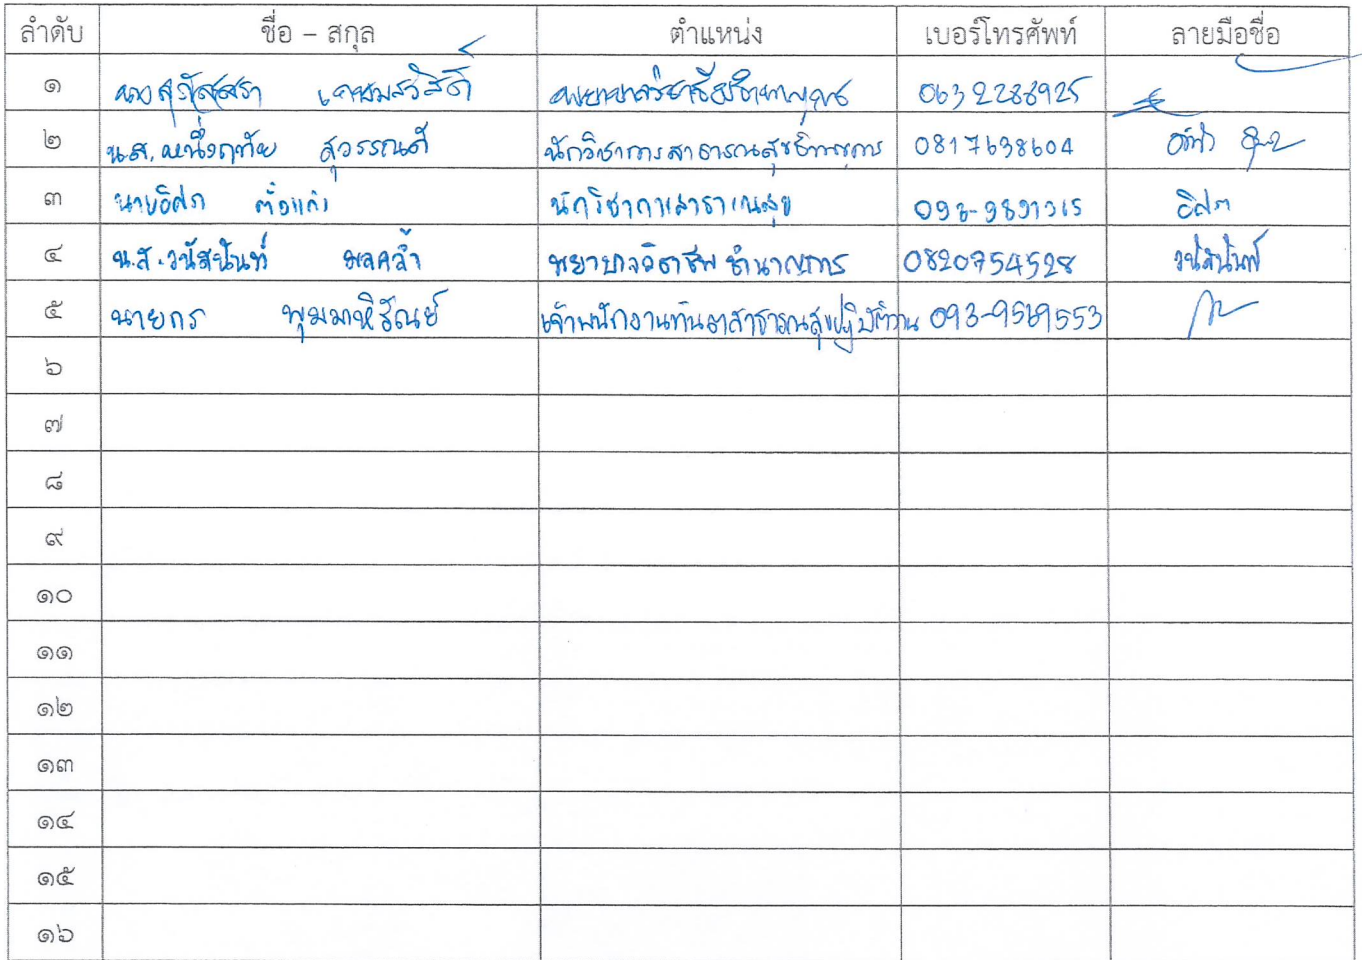 ลำดับ ชื่อ – สกุล ตำแหน่ง เบอร์โทรศัพท์ ลายมือชื่อ
๑ พยาบาลวิชาชีพชำนาญการ 0632288925
๒ น.ส. หนึ่งฤทัย สุวรรณดี นักวิชาการสาธารณสุขชำนาญการ 0817638604
๓ นาย ตั้งแต่ง นักวิชาการสาธารณสุข
๔ น.ส. วนัสนันท์ พลคล้ำ พยาบาลวิชาชีพ ชำนาญการ 0820754528 วนัสนันท์
๕ นายกร พุมมาหิรัณย์ เจ้าพนักงานทันตสาธารณสุขปฏิบัติงาน 093-9569553
๖
๗
๘
๙
๑๐
๑๑
๑๒
๑๓
๑๔
๑๕
๑๖